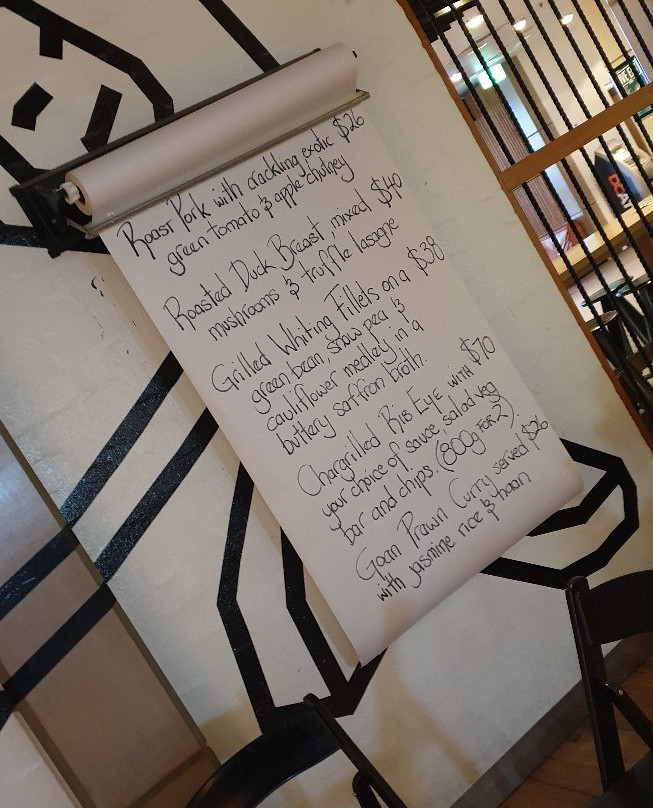 Roast Pork with crackling exotic $26
green tomato & apple chutney
Roasted Duck Breast, mixed $40
mushrooms & truffle lasagne
Grilled Whiting Fillets on a $38
green bean, snow pea &
cauliflower medley in a
buttery saffron broth.
Chargrilled Rib Eye with $70
your choice of sauce, salad veg
bar and chips. (800g FOR 2)
Goan Prawn Curry served $26
with jasmine rice & naan